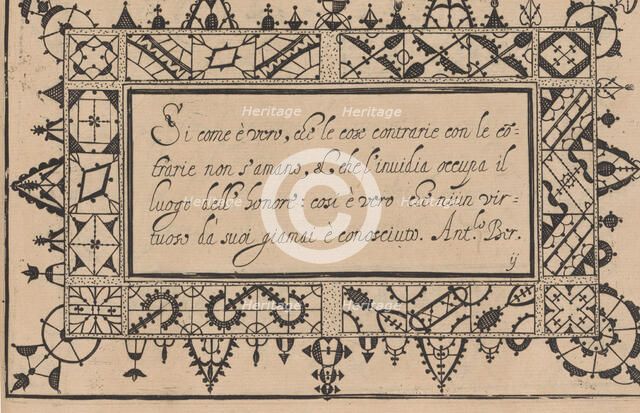 Si come è vero, che le cose contrarie con le cõ-
trarie non s'amano, &, che l'inuidia occupa il
luogo delle honore: cosi è vero che niun vir-
tuoso da suoi giamai è conosciuto. Ant.lo Ber.
ij
Heritage Heritage
Heritage Heritage
Heritage Heritage
©